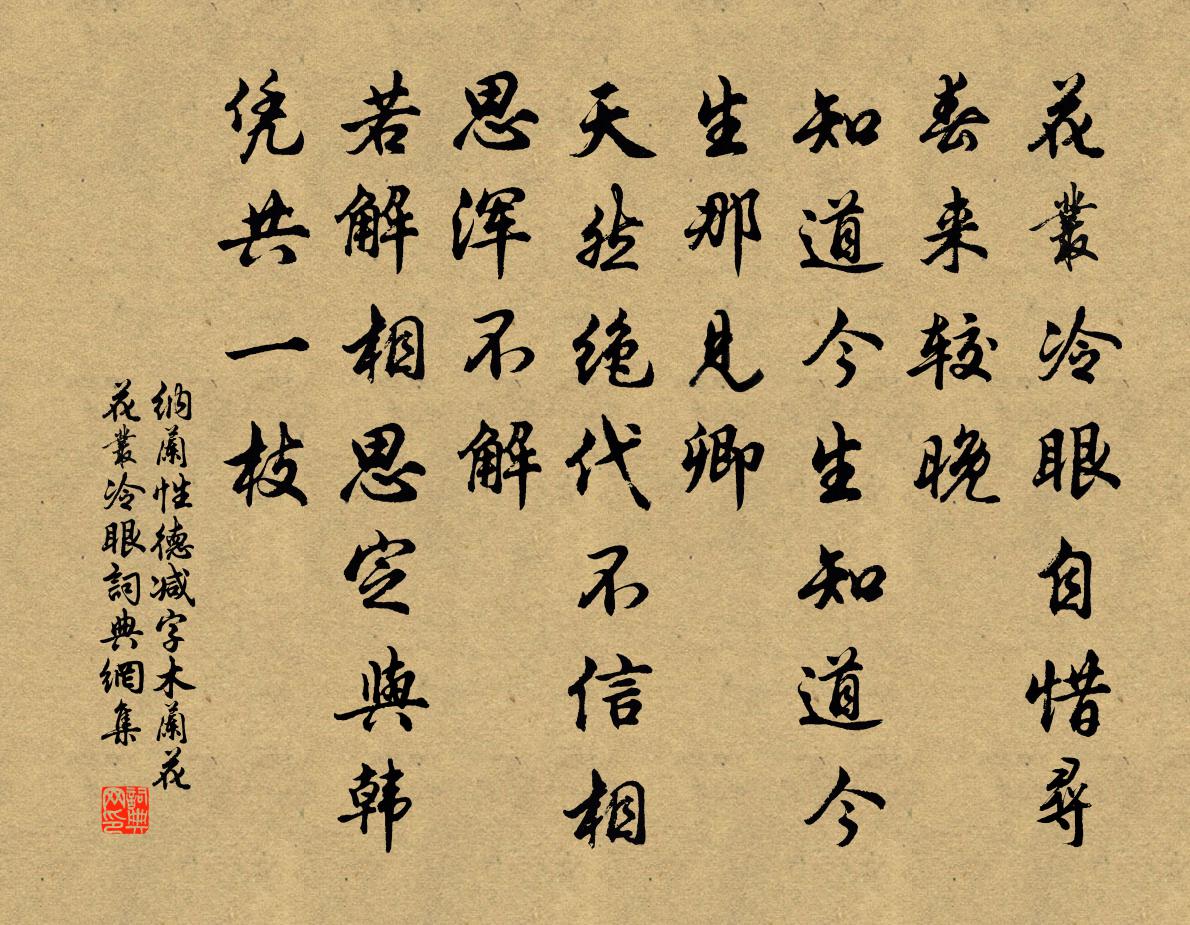 花叢冷眼自惜尋
春来较晚
知道今生知道今
生那見卿
天然绝代不信相
思浑不解
若解相思定與韩
凭共一枝
纳蘭性德减字木蘭花
花叢冷眼詞典網集
詞典
网印